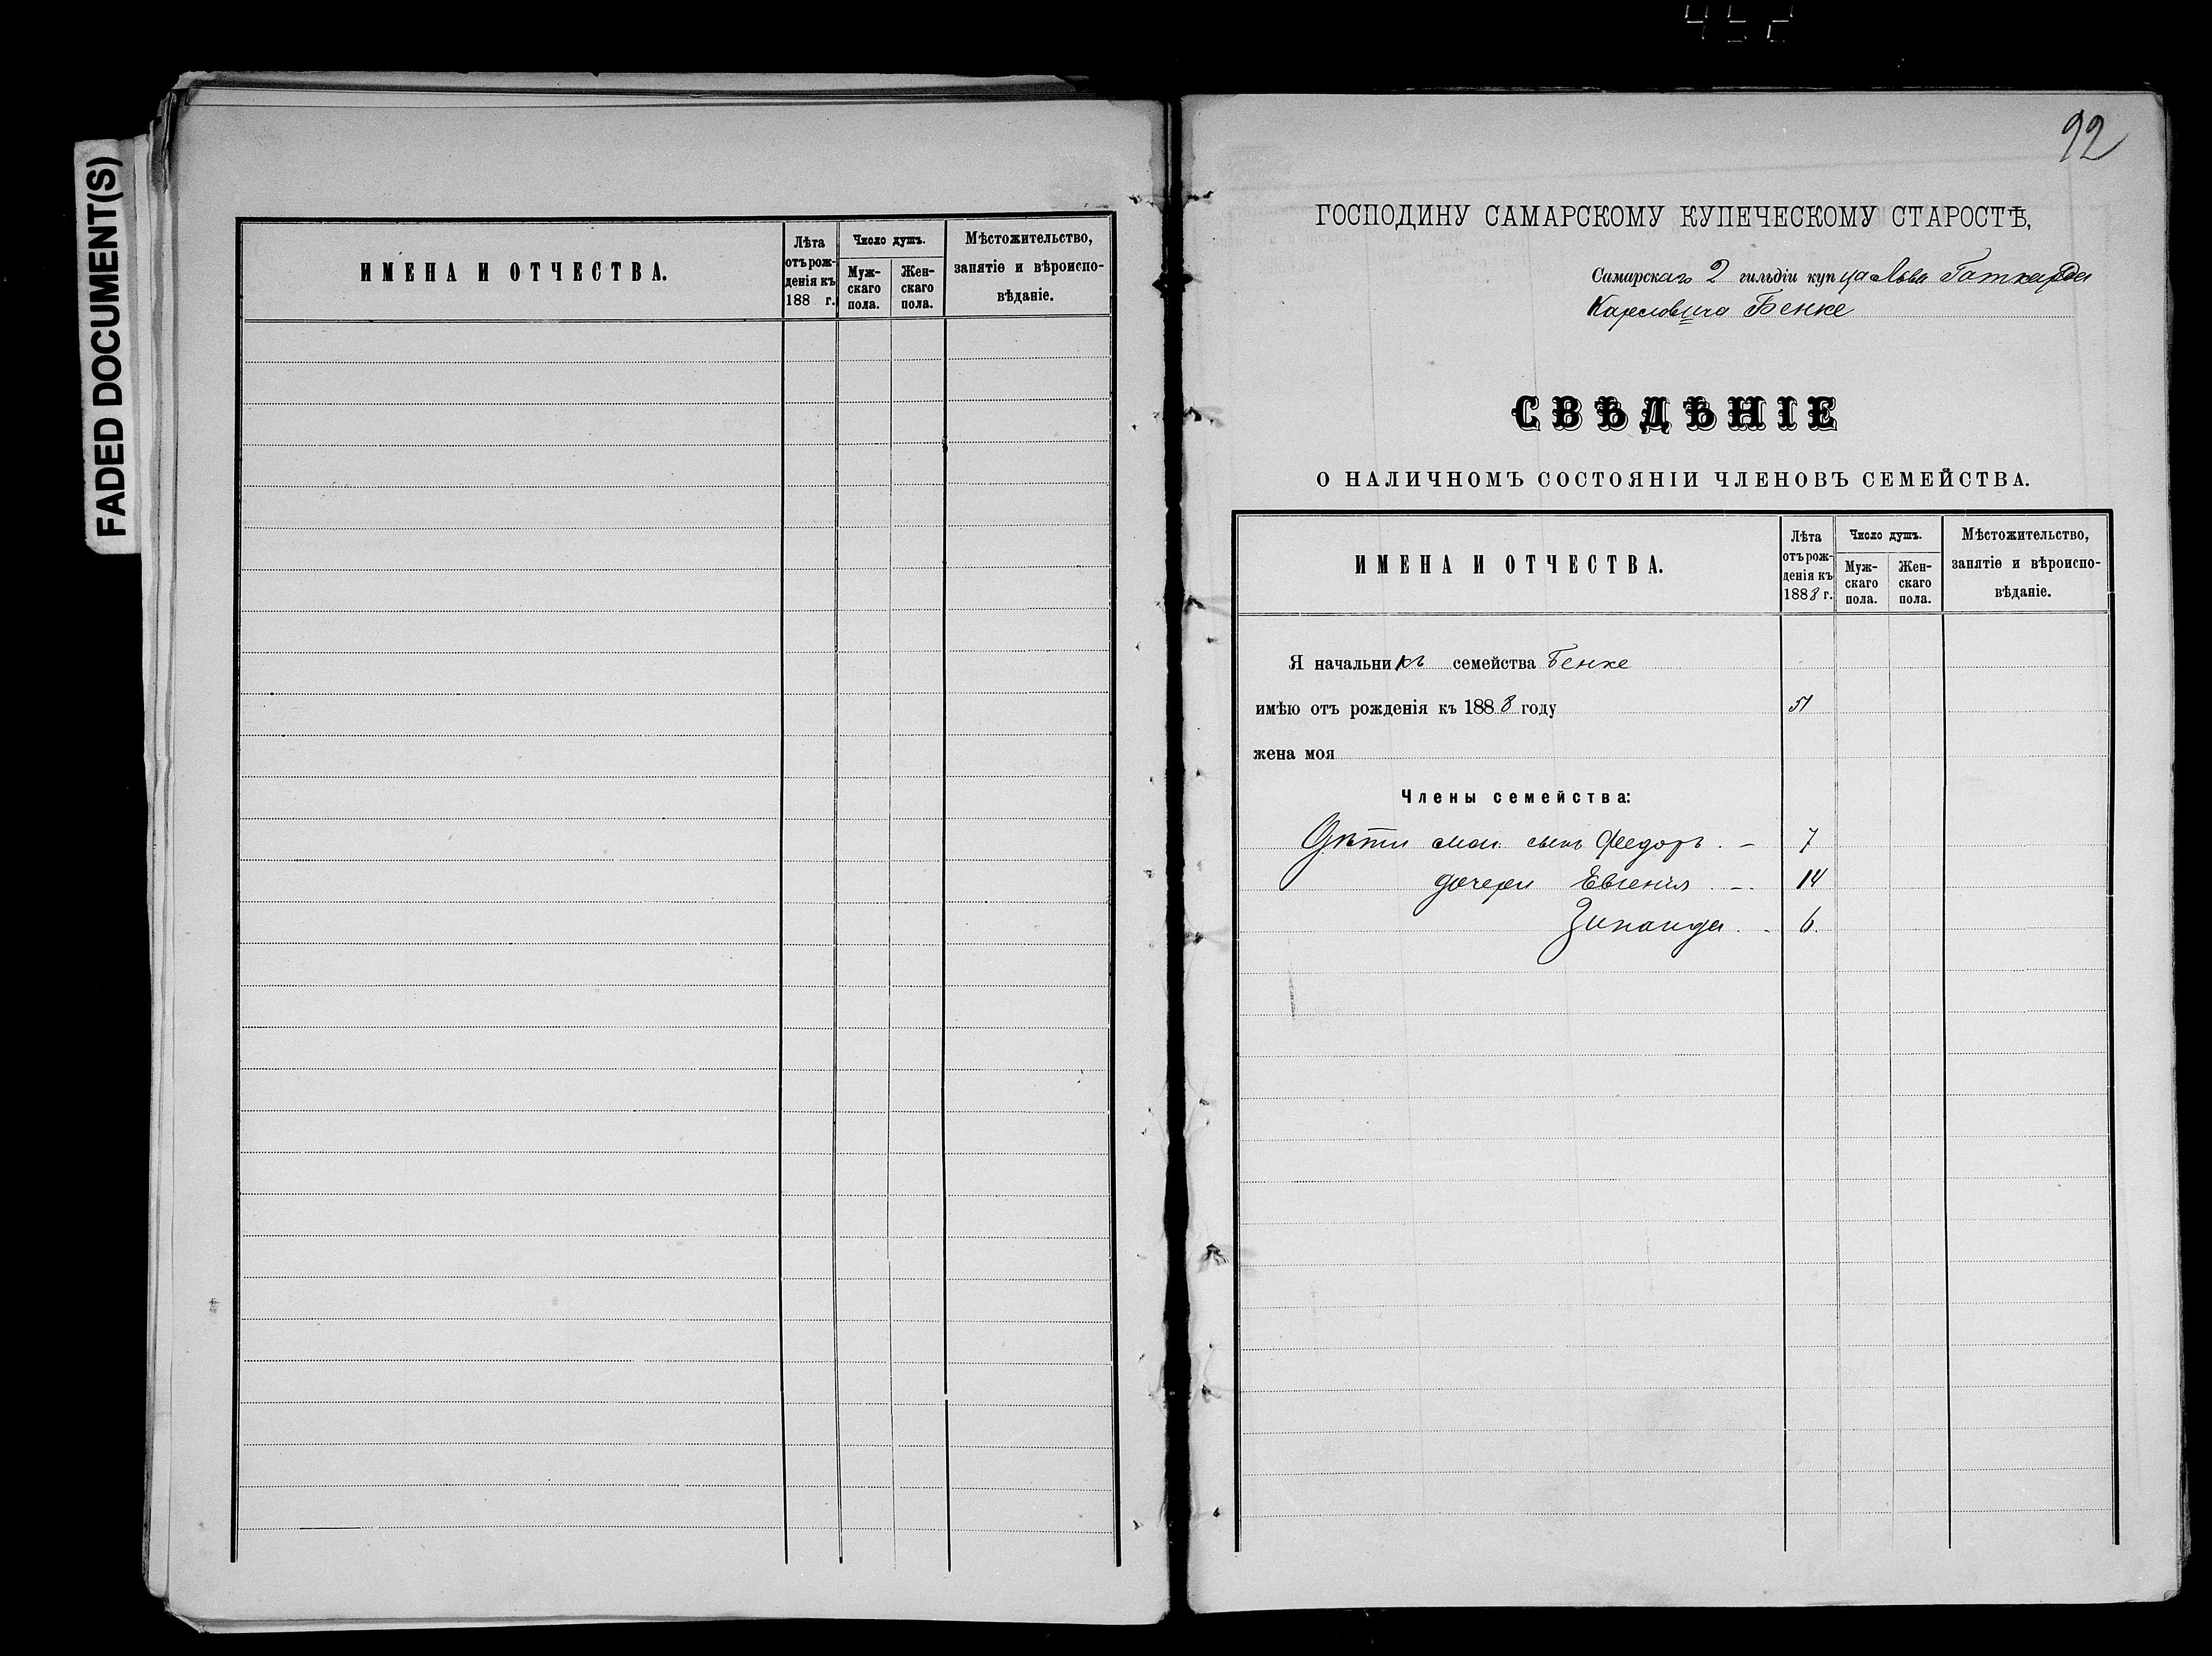 452
FADED DOCUMENT(S)
ИМЕНА И ОТЧЕСТВА.
Лѣта отъ рожденія къ 188 г.
Число душъ.
Мужскаго пола.
Женскаго пола.
Мѣстожительство, занятіе и вѣроисповѣданіе.
92
ГОСПОДИНУ САМАРСКОМУ КУПЕЧЕСКОМУ СТАРОСТѢ,
Самарскаго 2 гильдіи купца Льва Готгарда
Карловича Бенке
СВѢДѢНІЕ
О НАЛИЧНОМЪ СОСТОЯНІИ ЧЛЕНОВЪ СЕМЕЙСТВА.
ИМЕНА И ОТЧЕСТВА.
Лѣта отъ рожденія къ 1888 г.
Число душъ.
Мужскаго пола.
Женскаго пола.
Мѣстожительство, занятіе и вѣроисповѣданіе.
Я начальникъ семейства Бенке
имѣю отъ рожденія къ 1888 году 51
жена моя
Члены семейства:
Дѣти мои: сынъ Федоръ. – 7
дочери Евгенія. – 14
Зинаида. - 6.